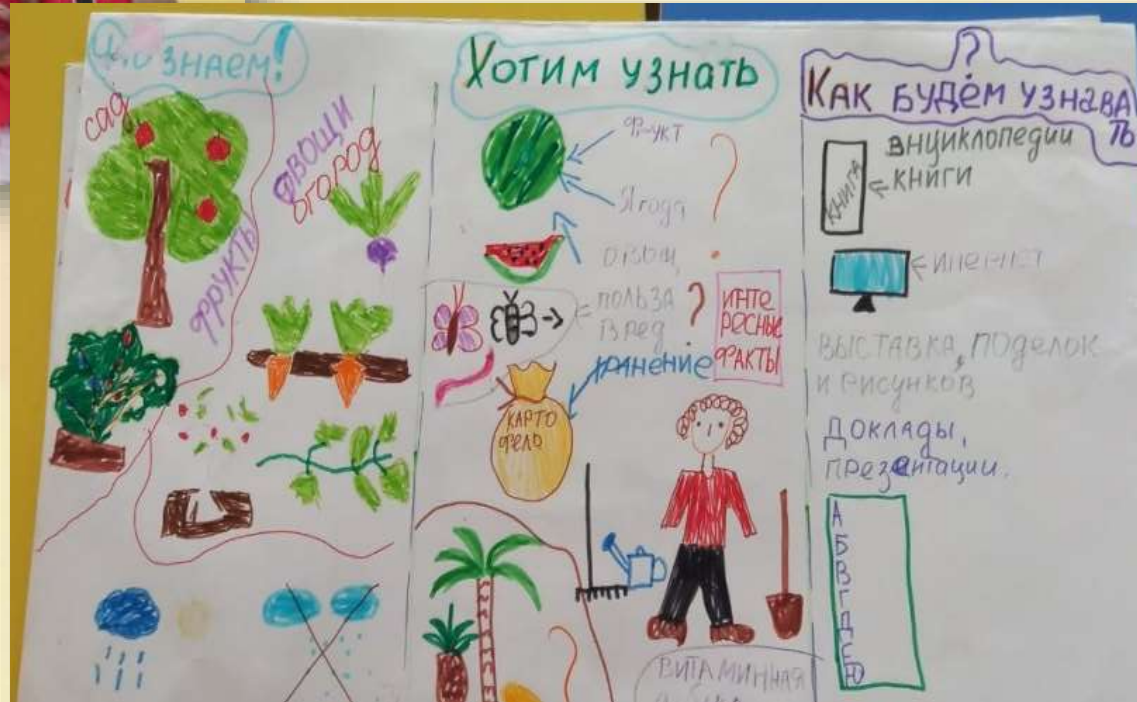 знаем!
сад
ФРУКТЫ
ОВОЩИ
огород
Хотим узнать
Фрукт
Ягода
овощ
?
польза
вред
?
ИНТЕ
РЕСНЫЕ
ФАКТЫ
хранение
КАРТО
фель
ВИТАМИННАЯ
?
КАК БУДЕМ УЗНАВА
ТЬ
энциклопедии
книги
КНИГА
ВЫСТАВКА, ПОДЕЛОК
И РИСУНКОВ
ДОКЛАДЫ,
ПРЕЗЕНТАЦИИ.
А
Б
В
Г
Д
Е
Ю